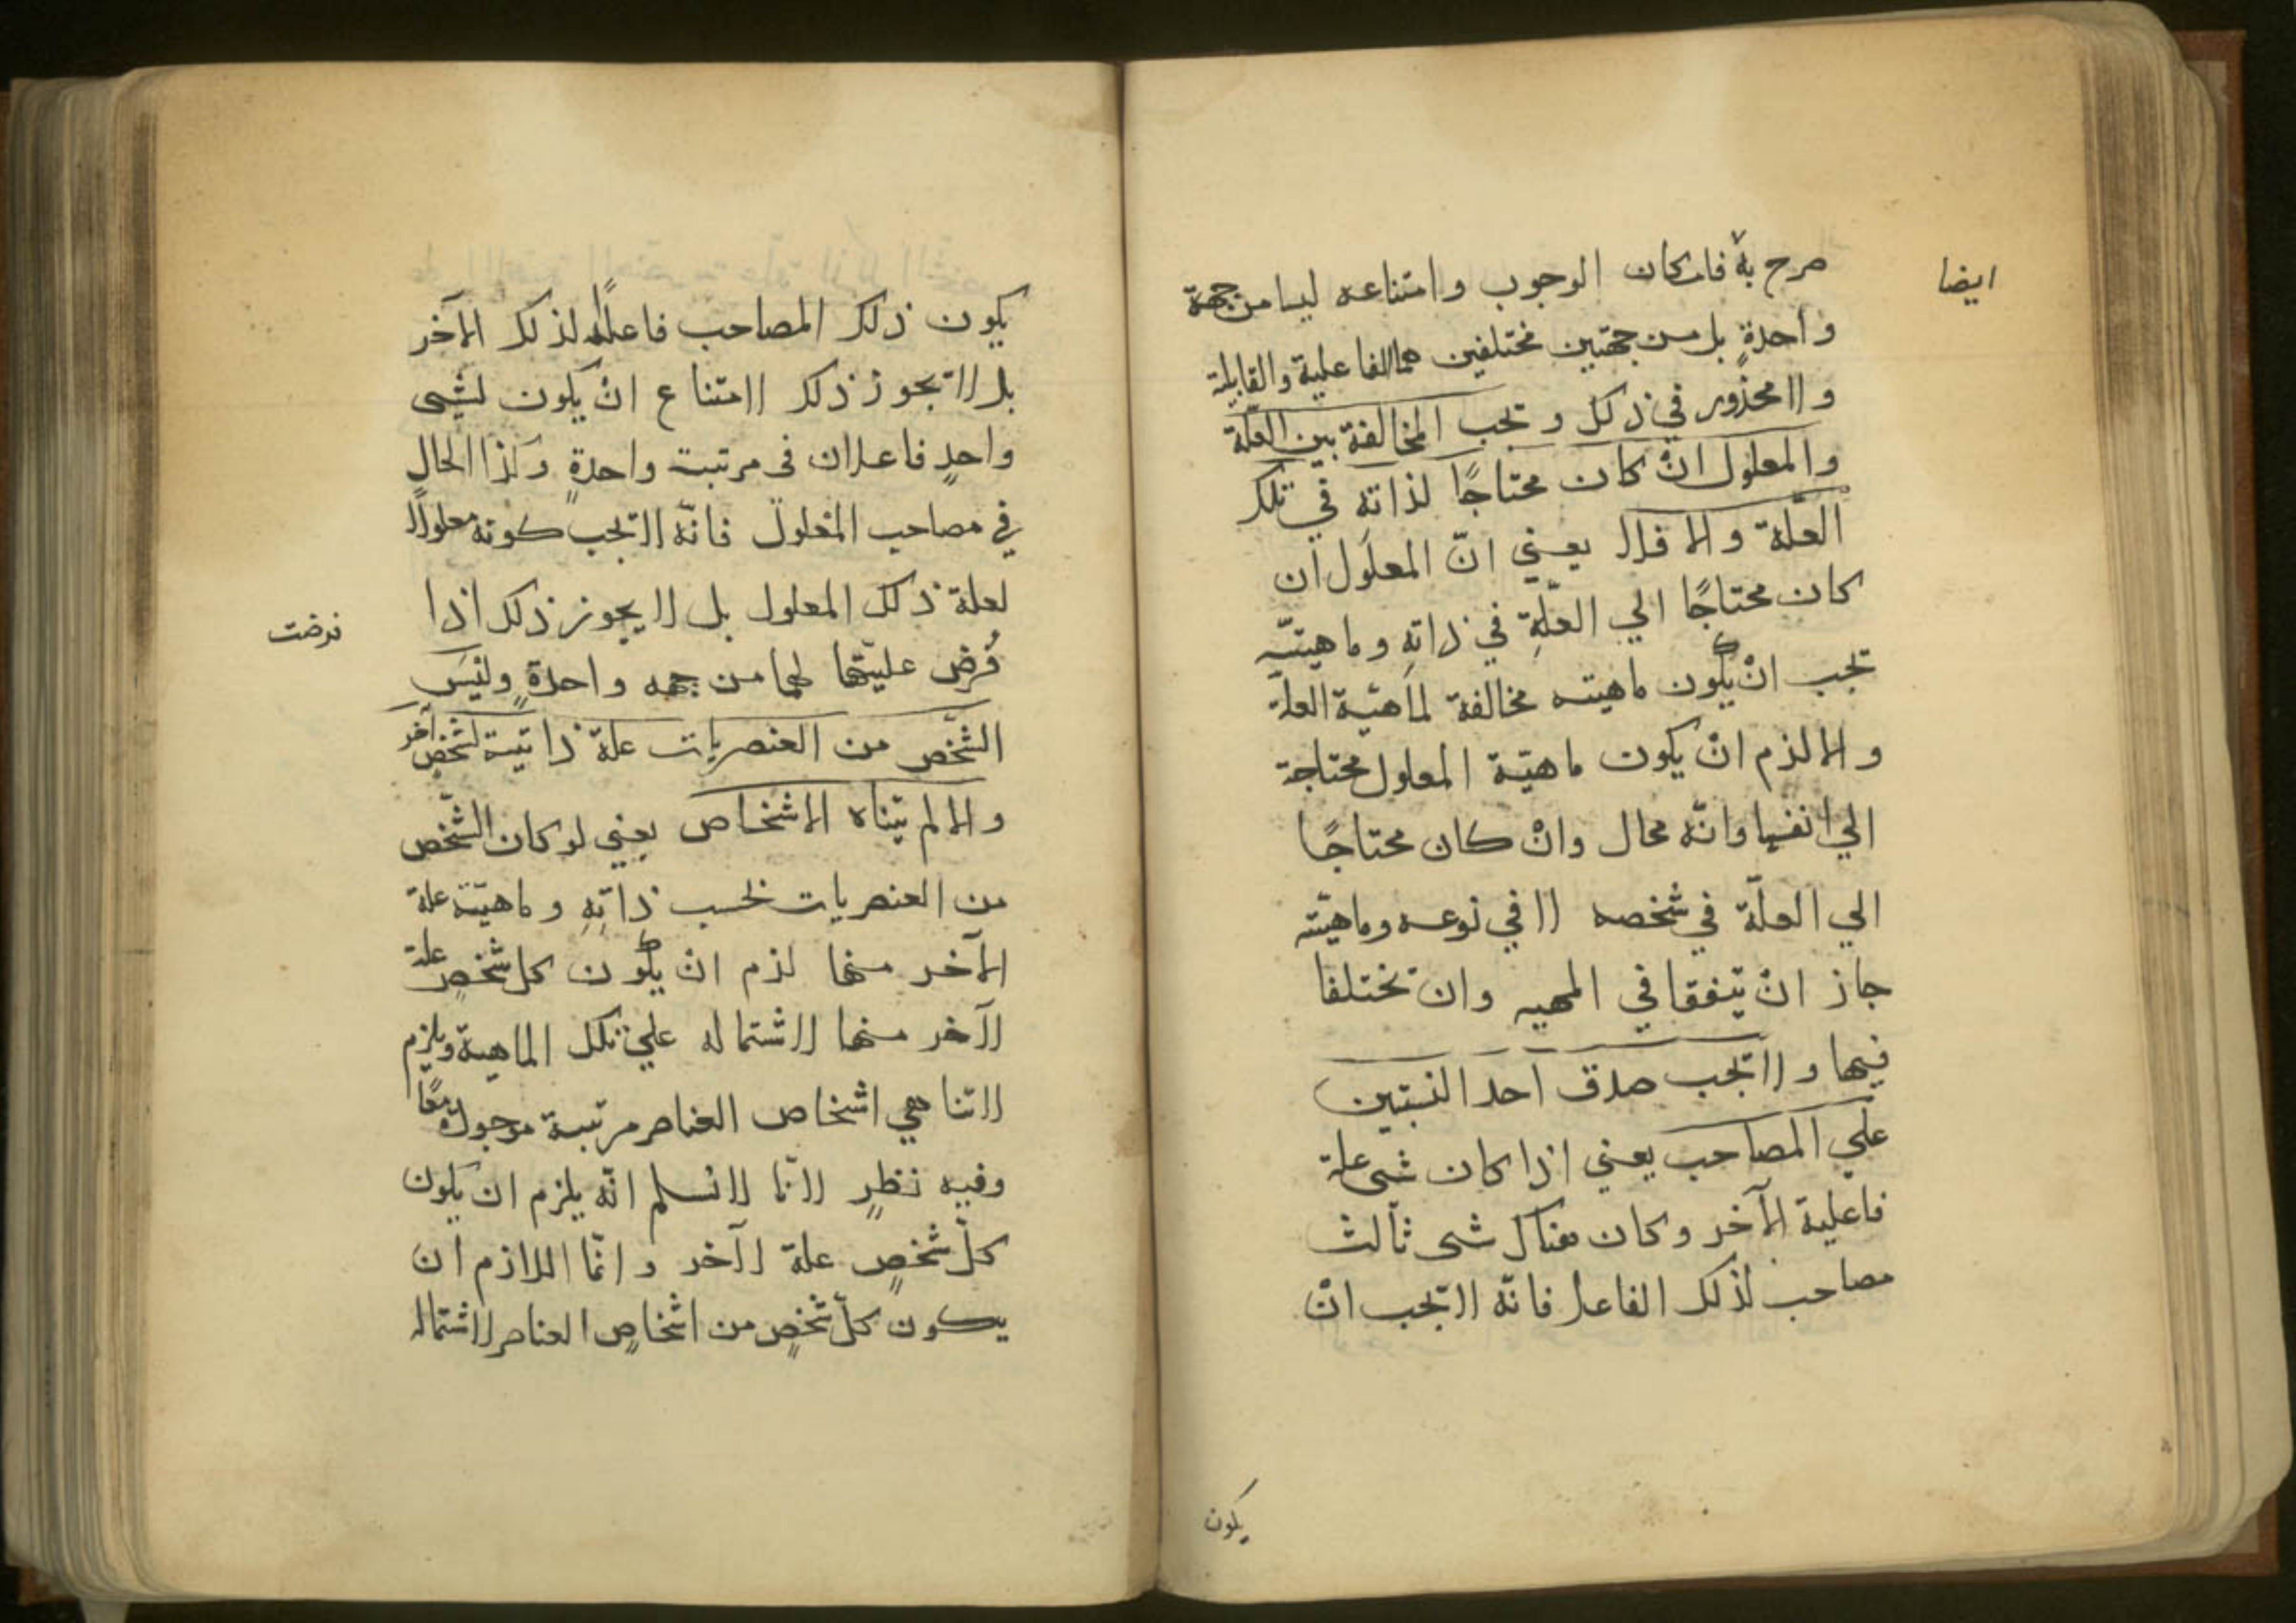 صرح به فامكان الوجوب وامتناعه ليسا من جهة
ايضا
واحدةٍ بل من جهتين مختلفين هما الفاعلية والقابلية
ولا محذور في ذلك وتجب المخالفة بين العلّة
والمعلول انْ كان محتاجًا لذاته في تلك
العلّة والا فلا يعني انّ المعلول ان
كان محتاجًا الي العلّةِ في ذاتهِ وماهيته
تجب انْ يكون ماهيته مخالفة لماهيّة العلة
والا لزم انْ يكون ماهيّة المعلول محتاجة
الي انفسها وانّه محال وانْ كان محتاجًا
الي العلّة في شخصه لا في نوعه وماهيّته
جاز انْ يتفقا في المهيه وان تختلفا
فيها ولا تجب صدق احد النسبتين
علي المصاحب يعني اذا كان شى علة
فاعلية لآخر وكان هناك شى ثالث
مصاحب لذلك الفاعل فانّه لا تجب انْ
يكون
يكون ذلك المصاحب فاعلًا لذلك الآخر
بل لا تجوز ذلك لامتناع انْ يكون لشى
واحدٍ فاعلان فى مرتبة واحدةٍ وكذا الحال
في مصاحب المعلول فانّه لا تجب كونه معلولًا
لعلة ذلك المعلول بل لا يجوز ذلك اذا
فرضت
فُرض عليّتها لهما من جهه واحدةٍ وليسَ
الشّخص من العنصريات علة ذاتيّة لشخصٍ آخر
والا لم يتناه الاشخاص يعني لو كان الشّخص
من العنصريات بحسب ذاتهِ وماهيّته علة
لآخر منها لزم ان يكون كل شخصٍ علة
لآخر منها لاشتماله علي تلك الماهية ويلزم
لا تناهي اشخاص العناصر مرتبة موجودة معًا
وفيه نظرٍ لانّا لا نسلم انّه يلزم ان يكون
كلّ شخصٍ علة لآخر وانّما اللازم ان
يكون كلّ شخصٍ من اشخاصٍ العناصر لاشتماله